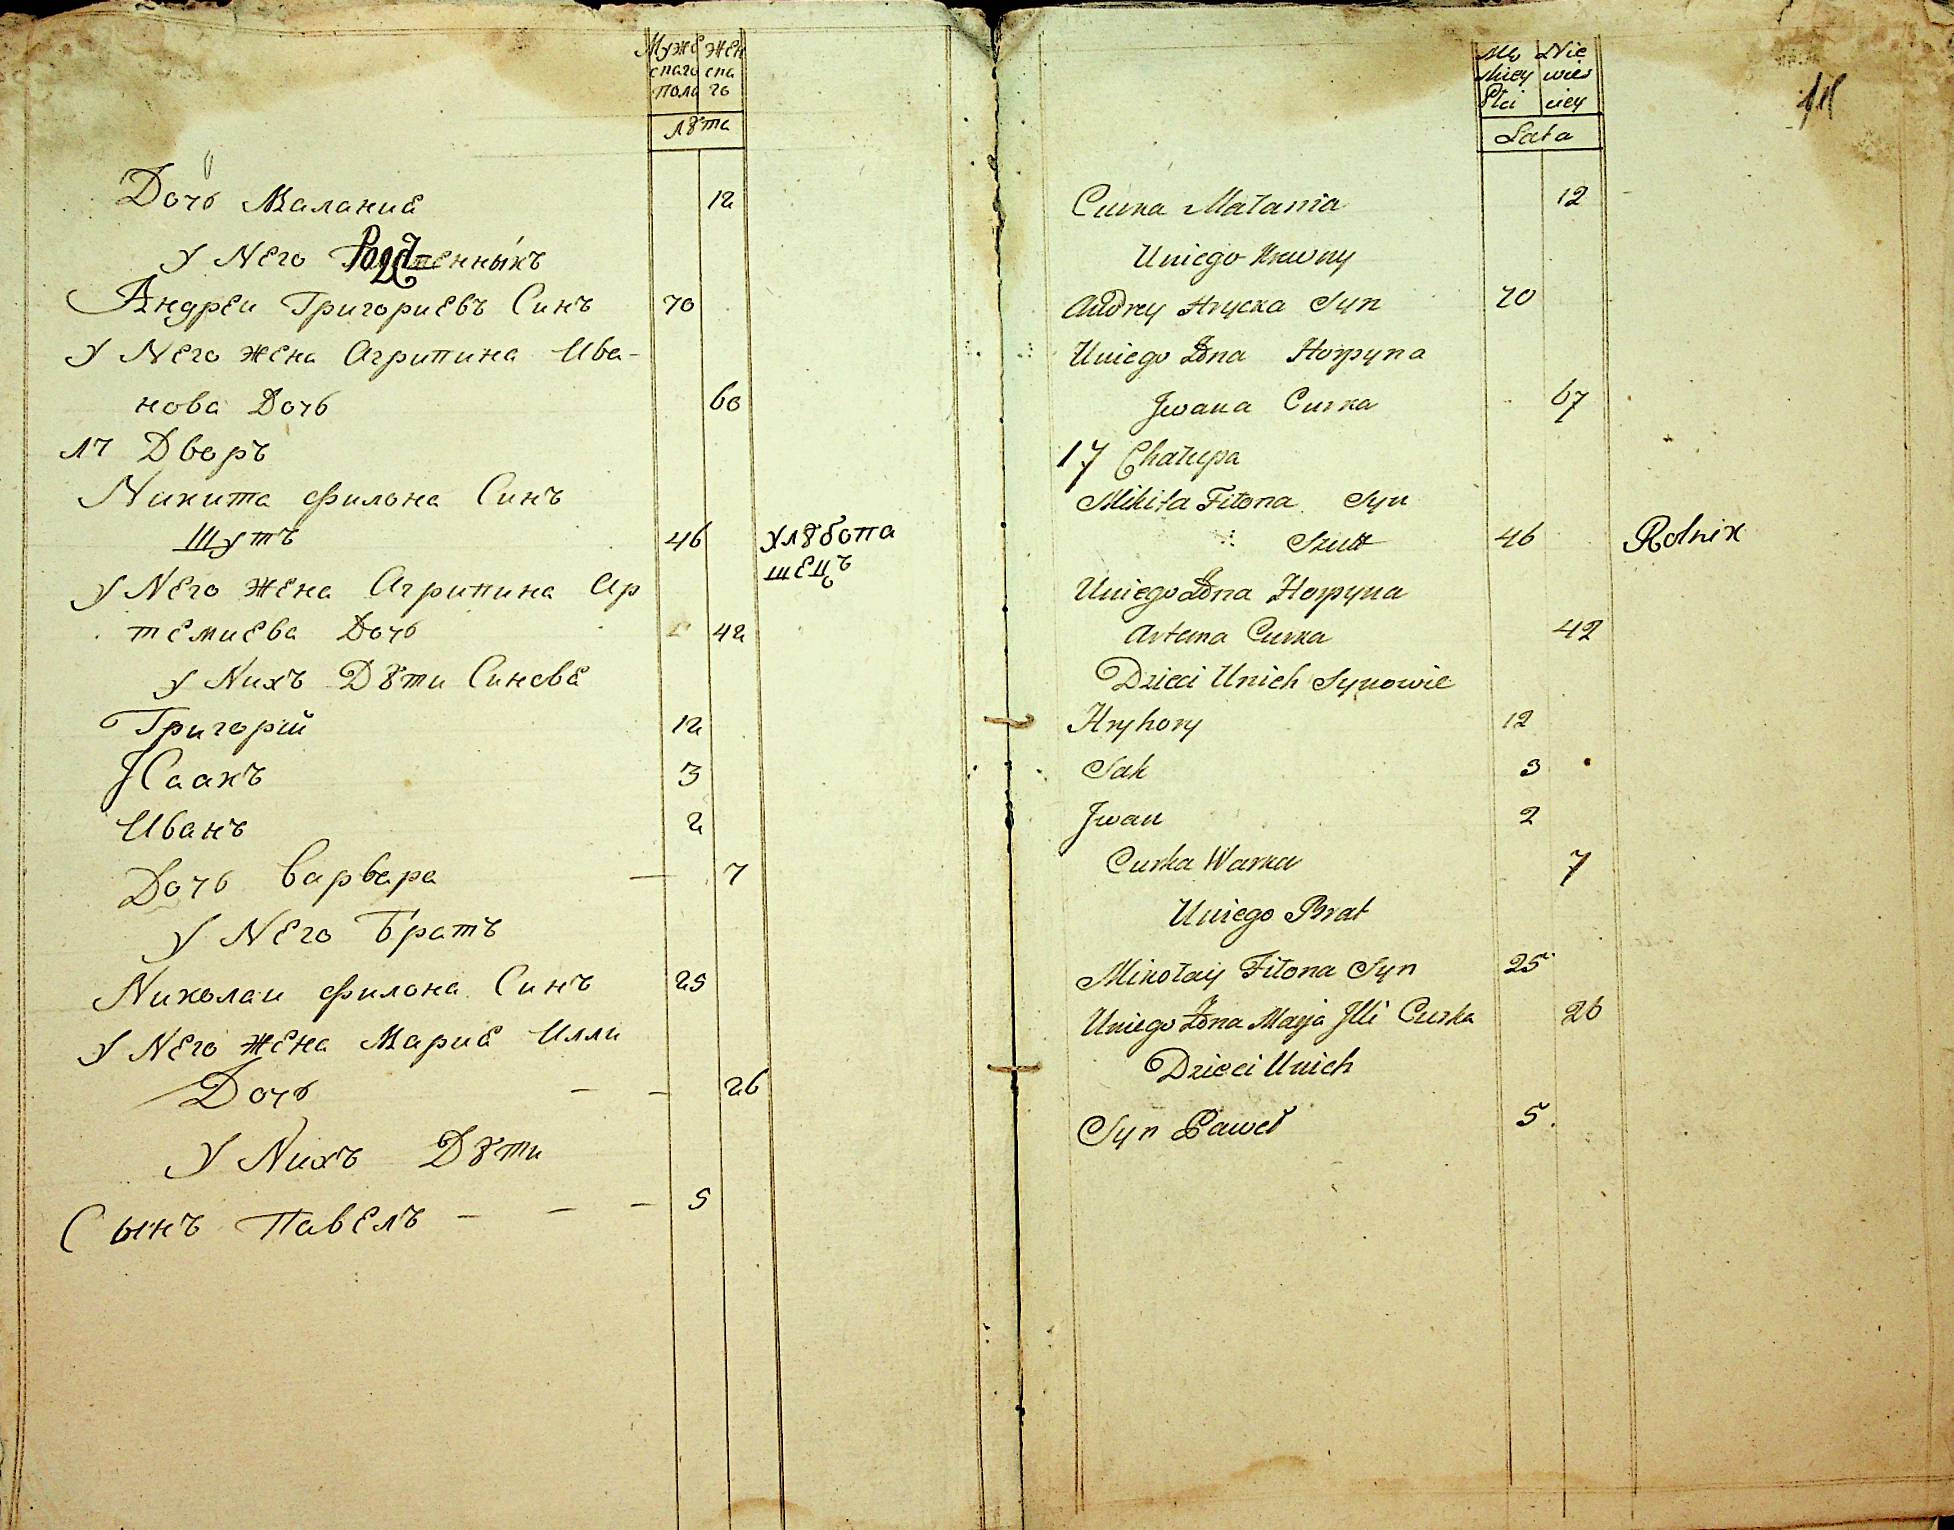 Муже жен
скаго ска
пола го
лѣта
Дочь Маланиѣ 12
У Него Родственныхъ
Андреи Григориевъ Синъ 70
У Него жена Агрипина Ива-
нова Дочь 60
17 Дворъ
Никита Филона Синъ
Шутъ 46 Хлѣбопа
шецъ
У Него жена Агрипина Ар
темиева Дочь 42
У Нихъ Дѣти Синовѣ
Григорій 12
Jсаакъ 3
Иванъ 2
Дочь Варвара — 7
У Него Братъ
Николаи Филона Синъ 25
У Него жена Мариѣ Илли
Дочь — — 26
У Нихъ Дѣти
Сынъ Павелъ — — — 5
Mę Nie
skiey wies
Płci ciey
Lata
Curka Małania 12
Uniego Krewny
Andrey Hrycka Syn 70
Uniego Żona Horpyna
Jwana Curka 67
17 Chałupa
Mikita Fiłona Syn
Szutt 46 Rolnik
Uniego Żona Horpyna
Artema Curka 42
Dzieci Unich Synowie
Hryhory 12
Sak 3
Jwan 2
Curka Warka 7
Uniego Brat
Mikołay Fiłona Syn 25
Uniego Żona Marja Jlli Curka 26
Dzieci Unich
Syn Paweł 5